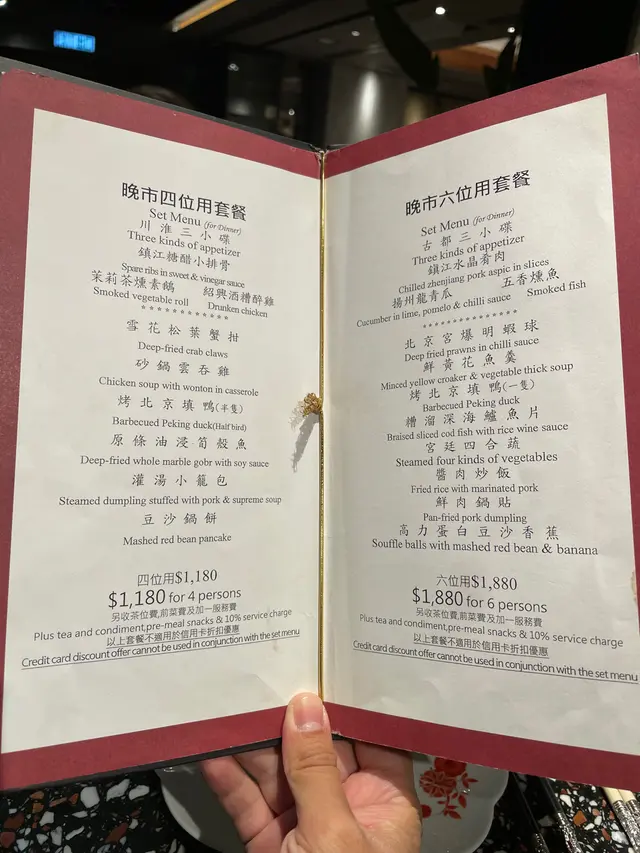 晚市四位用套餐
Set Menu (for Dinner)
川淮三小碟
Three kinds of appetizer
鎮江糖醋小排骨
Spare ribs in sweet & vinegar sauce
茉莉茶燻素鵝 紹興酒糟醉雞
Smoked vegetable roll Drunken chicken
************
雪花松葉蟹拑
Deep-fried crab claws
砂鍋雲吞雞
Chicken soup with wonton in casserole
烤北京填鴨(半隻)
Barbecued Peking duck(Half bird)
原條油浸筍殼魚
Deep-fried whole marble gobr with soy sauce
灌湯小籠包
Steamed dumpling stuffed with pork & supreme soup
豆沙鍋餅
Mashed red bean pancake
四位用$1,180
$1,180 for 4 persons
另收茶位費,前菜費及加一服務費
Plus tea and condiment,pre-meal snacks & 10% service charge
以上套餐不適用於信用卡折扣優惠
Credit card discount offer cannot be used in conjunction with the set menu
晚市六位用套餐
Set Menu (for Dinner)
古都三小碟
Three kinds of appetizer
鎮江水晶肴肉
Chilled zhenjiang pork aspic in slices
揚州龍青瓜 五香燻魚
Cucumber in lime, pomelo & chilli sauce Smoked fish
**************
北京宮爆明蝦球
Deep fried prawns in chilli sauce
鮮黃花魚羹
Minced yellow croaker & vegetable thick soup
烤北京填鴨(一隻)
Barbecued Peking duck
糟溜深海鱸魚片
Braised sliced cod fish with rice wine sauce
宮廷四合蔬
Steamed four kinds of vegetables
醬肉炒飯
Fried rice with marinated pork
鮮肉鍋貼
Pan-fried pork dumpling
高力蛋白豆沙香蕉
Souffle balls with mashed red bean & banana
六位用$1,880
$1,880 for 6 persons
另收茶位費,前菜費及加一服務費
Plus tea and condiment,pre-meal snacks & 10% service charge
以上套餐不適用於信用卡折扣優惠
Credit card discount offer cannot be used in conjunction with the set menu